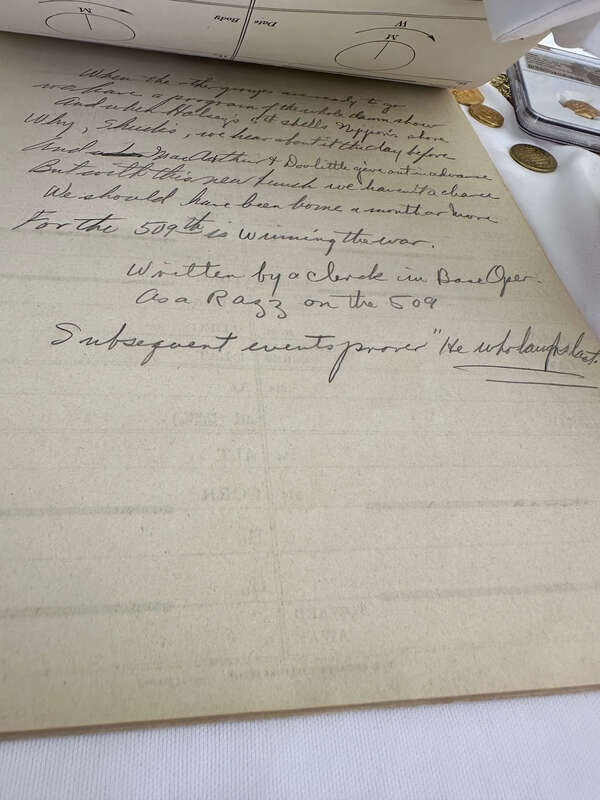 M
W
Date Body
M
When the other groups are ready to go
we have a program of the whole damn show
And when Halsey's 5th shells Nippon's shore
Why, shucks, we hear about it the day before
And MacArthur & Doolittle give out in advance
But with this new bunch we haven't a chance
We should have been home a month or more
For the 509th is winning the war.
Written by a clerk in Base Oper.
As a Razz on the 509
Subsequent events prover "He who laughs last.